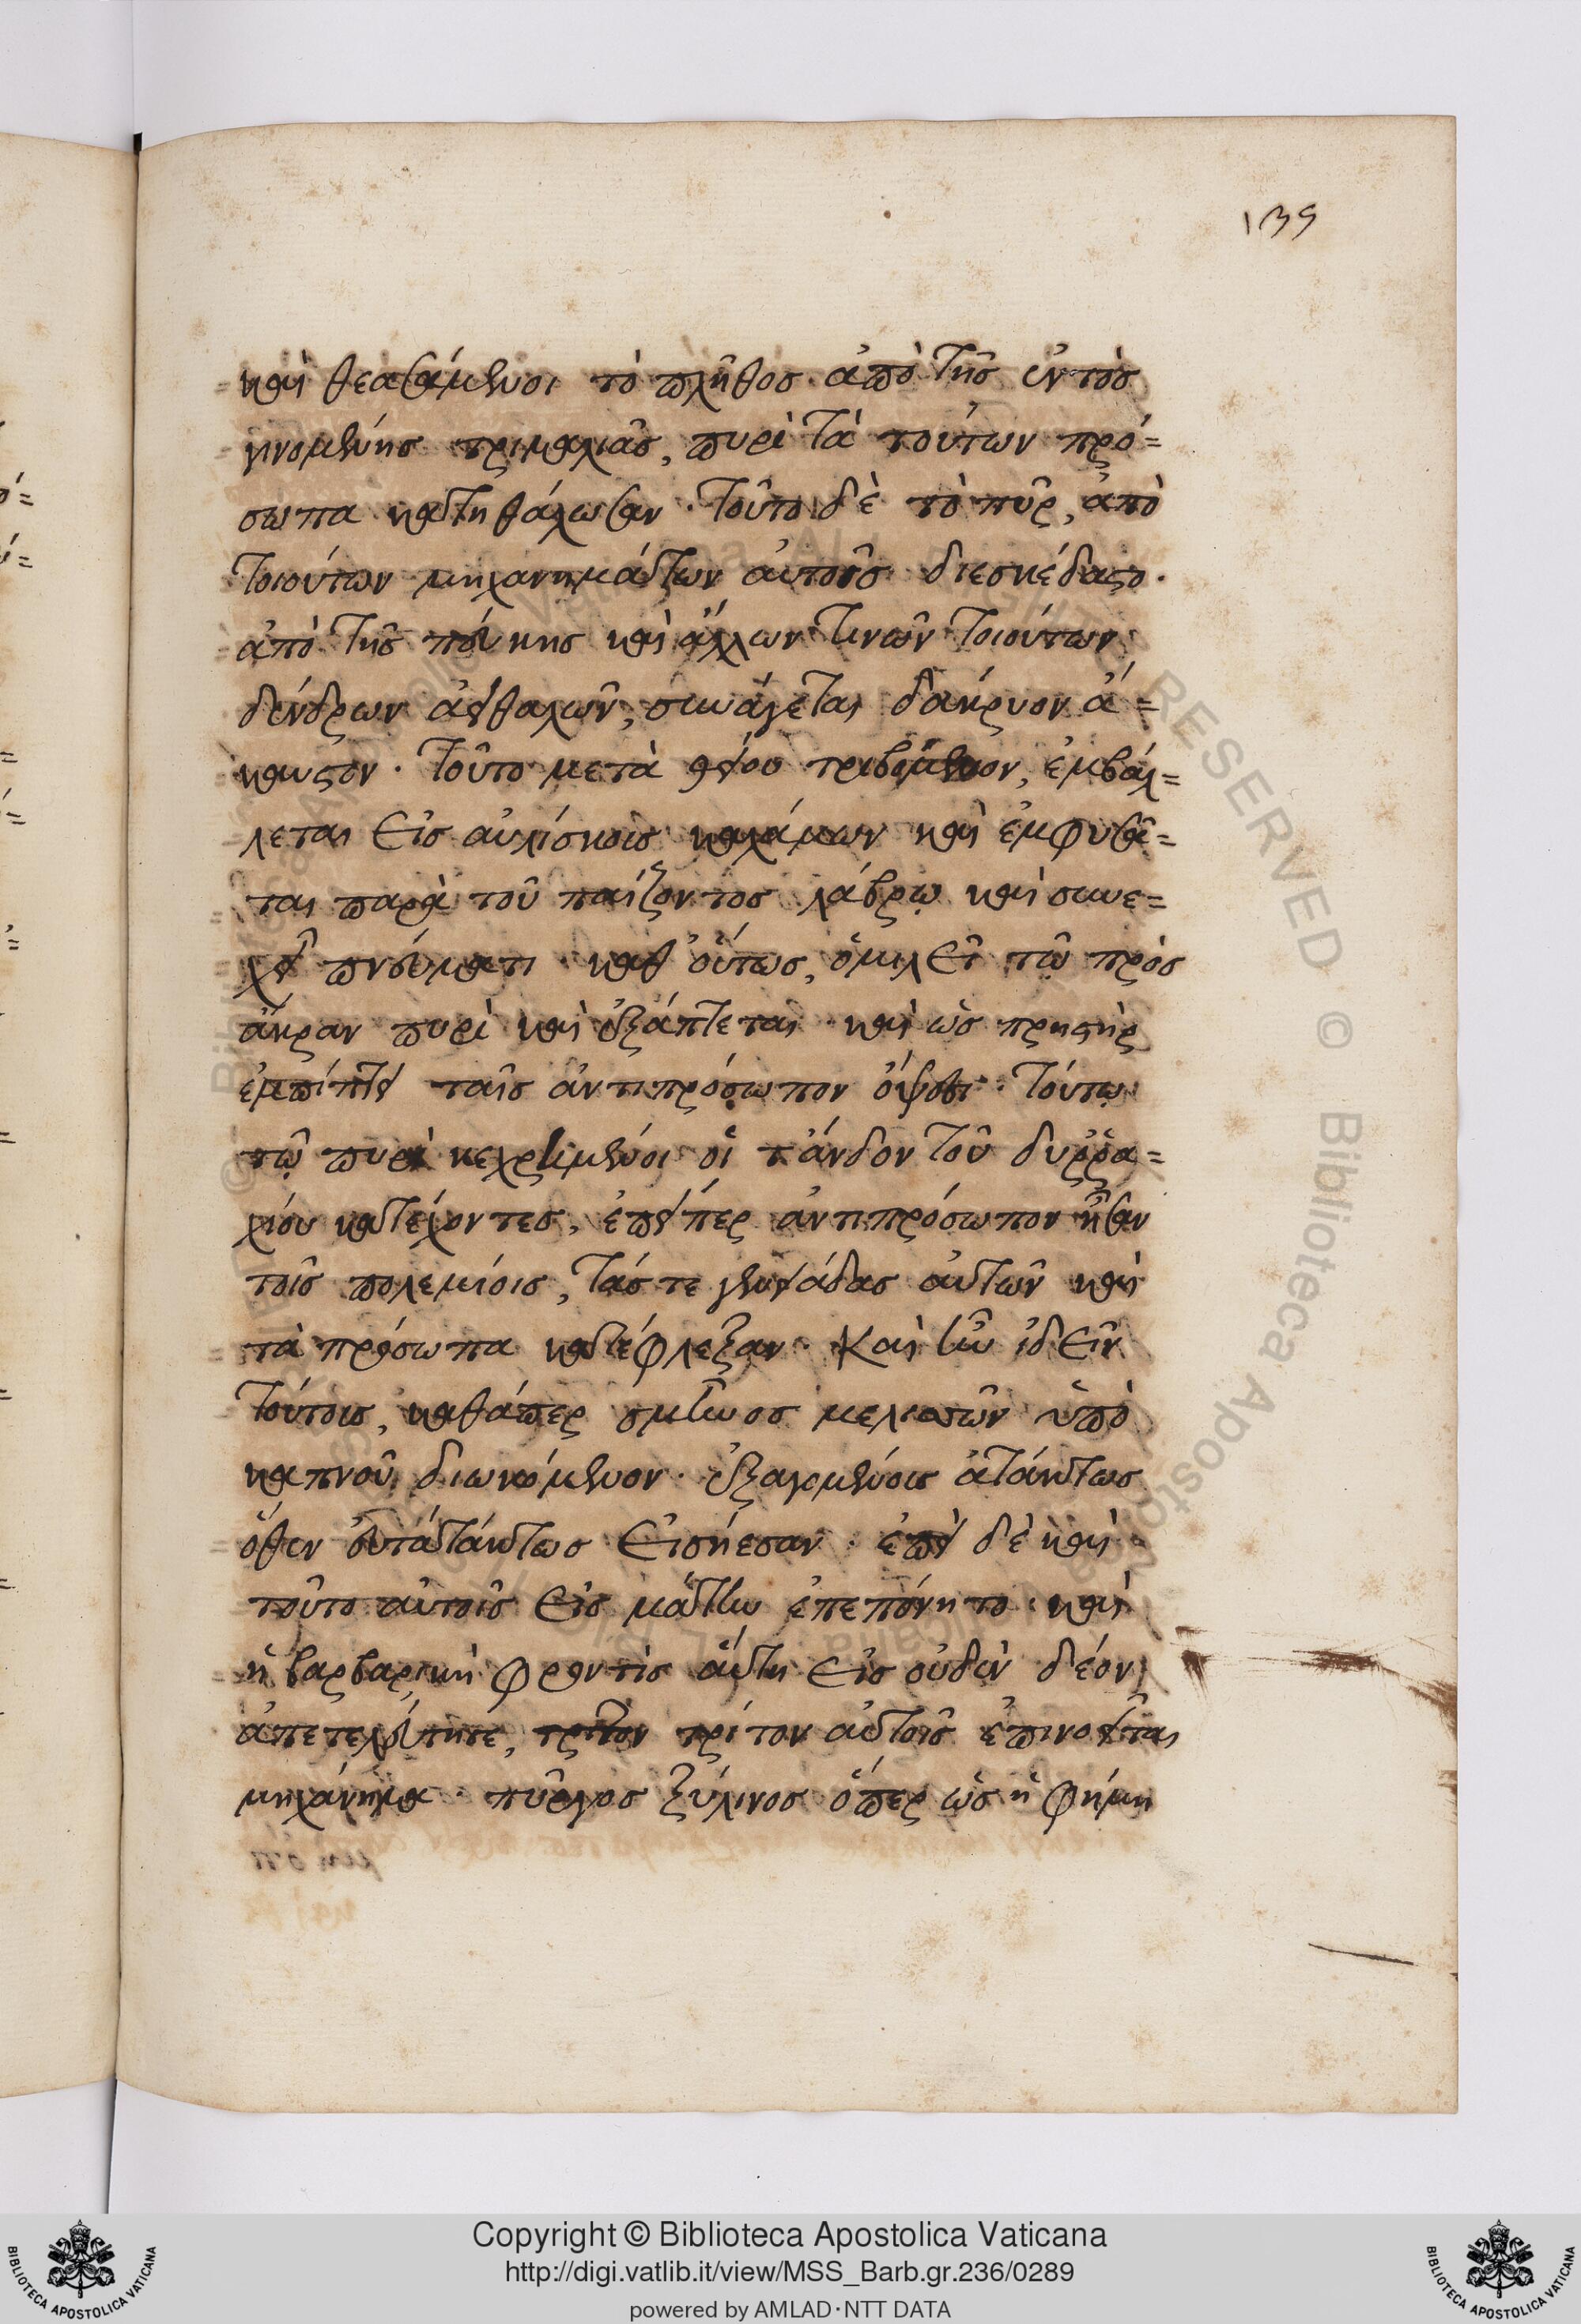 139
καὶ θεασάμενοι τὸ πλῆθος ἀπὸ τῆς ἐντὸς
γινομένης τριμαλιᾶς, πυρὶ τὰ τούτων πρό=
σωπα κατῃθάλωσαν · τοῦτο δὲ τὸ πῦρ, ἀπὸ
τοιούτων μηχανημάτων αὐτοῖς διεσκέδαστο ·
ἀπὸ τῆς πεύκης καὶ ἄλλων τινῶν τοιούτων
δένδρων ἀειθαλῶν, συνάγεται δάκρυον ἄ=
καυστον · τοῦτο μετὰ θείου τριβόμενον, ἐμβάλ=
λεται εἰς αὐλίσκοις καλάμων καὶ ἐμφυσᾶ=
ται παρὰ τοῦ παίζοντος λάβρῳ καὶ συνε=
χεῖ πνεύματι · καθ οὕτως, ὁμιλεῖ τῷ πρὸς
ἄκραν πυρὶ καὶ ἐξάπτεται · καὶ ὡς πρηστὴρ
ἐμπίπτει ταῖς ἀντιπρόσωπον ὄψεσι · τούτῳ
τῷ πυρὶ κεχρημένοι οἱ τἄνδον τοῦ δυρρα=
χίου κατέχοντες, ἐπείπερ ἀντιπρόσωπον ἦσαν
τοῖς πολεμίοις, τάς τε γενειάδας αὐτῶν καὶ
τὰ πρόσωπα κατέφλεξαν · Καὶ ἦν ἰδεῖν
τούτοις, καθάπερ σμῆνος μελισσῶν ὑπὸ
καπνοῦ διωκόμενον · ἐξαγομένοις ἀτάκτως
ὅθεν εὐτάκτως εἰσῄεσαν · ἐπεὶ δὲ καὶ
τοῦτο αὐτοῖς εἰς μάτην ἐπεπόνητο · καὶ
ἡ βαρβαρικὴ φροντὶς αὕτη εἰς οὐδὲν δέον
ἀπετελεύτησε, τρίτον αὐτοῖς ἐπινοεῖται
μηχάνημα · πύργος ξύλινος ὅπερ ὡς ἡ φήμη
Copyright © Biblioteca Apostolica Vaticana
http://digi.vatlib.it/view/MSS_Barb.gr.236/0289
powered by AMLAD·NTT DATA